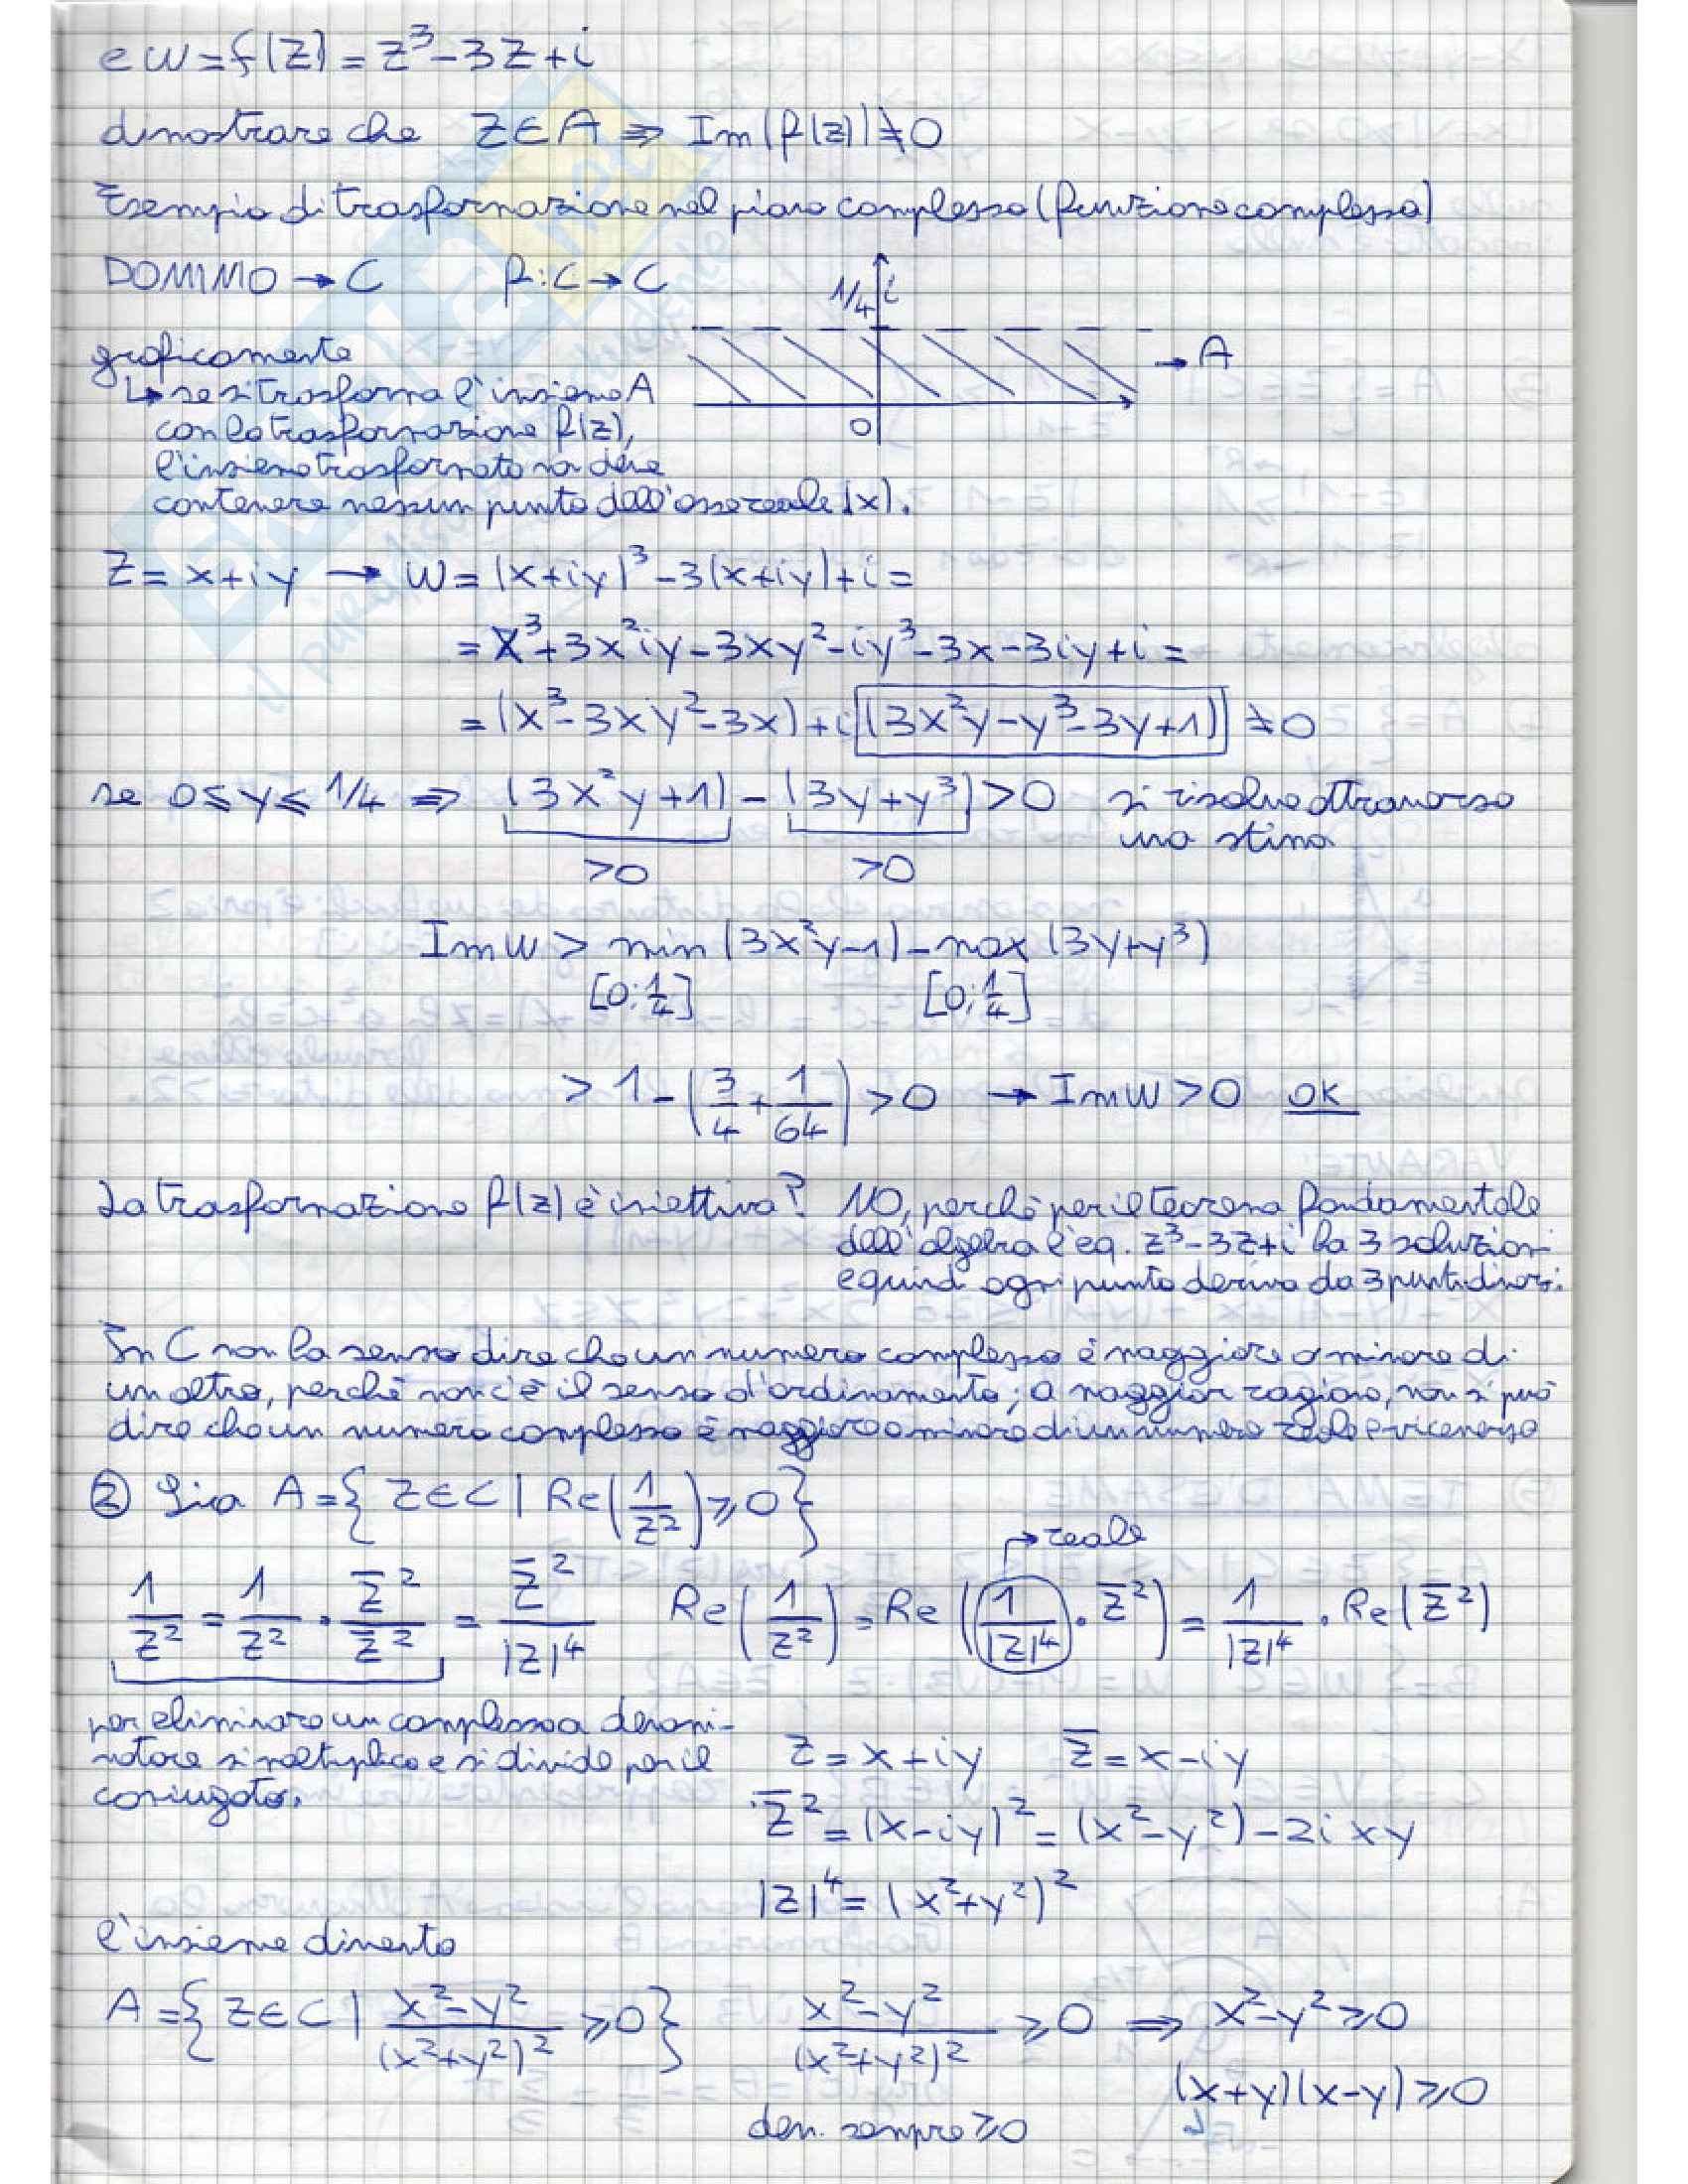 e w = f(z) = z³ - 3z + i
dimostrare che z ∈ A ⇒ Im(f(z)) ≠ 0
Esempio di trasformazione nel piano complesso (funzione complessa)
DOMINIO → C f: C → C
1/4 i
graficamente
→ A
↳ se si trasforma l'insieme A
con la trasformazione f(z),
0
l'insieme trasformato non deve
contenere nessun punto dell'asse reale (x).
z = x+iy → w = (x+iy)³ - 3(x+iy) + i =
= x³ + 3x²iy - 3xy² - iy³ - 3x - 3iy + i =
= (x³ - 3xy² - 3x) + i (3x²y - y³ - 3y + 1) ≠ 0
se 0 ≤ y ≤ 1/4 ⇒ (3x²y+1) - (3y+y³) > 0 si risolve attraverso
una stima
>0 >0
Im w > min (3x²y-1) - max (3y+y³)
[0; 1/4] [0; 1/4]
> 1 - (3/4 + 1/64) > 0 → Im w > 0 OK
La trasformazione f(z) è iniettiva? NO, perchè per il teorema fondamentale
dell'algebra l'eq. z³-3z+i ha 3 soluzioni
e quindi ogni punto deriva da 3 punti diversi.
In C non ha senso dire che un numero complesso è maggiore o minore di
un altro, perchè non c'è il senso d'ordinamento; a maggior ragione, non si può
dire che un numero complesso è maggiore o minore di un numero reale e viceversa
② Sia A = { z ∈ C | Re(1/z²) ≥ 0 }
→ reale
1/z² = 1/z² · z̄²/z̄² = z̄²/|z|⁴ Re(1/z²) = Re(1/|z|⁴ · z̄²) = 1/|z|⁴ · Re(z̄²)
per eliminare un complesso a denomi-
natore si moltiplica e si divide per il
coniugato.
z = x+iy z̄ = x-iy
z̄² = (x-iy)² = (x²-y²) - 2ixy
|z|⁴ = (x²+y²)²
l'insieme diventa
A = { z ∈ C | x²-y²/(x²+y²)² ≥ 0 } x²-y²/(x²+y²)² ≥ 0 ⇒ x²-y² ≥ 0
(x+y)(x-y) ≥ 0
den. sempre ≥ 0